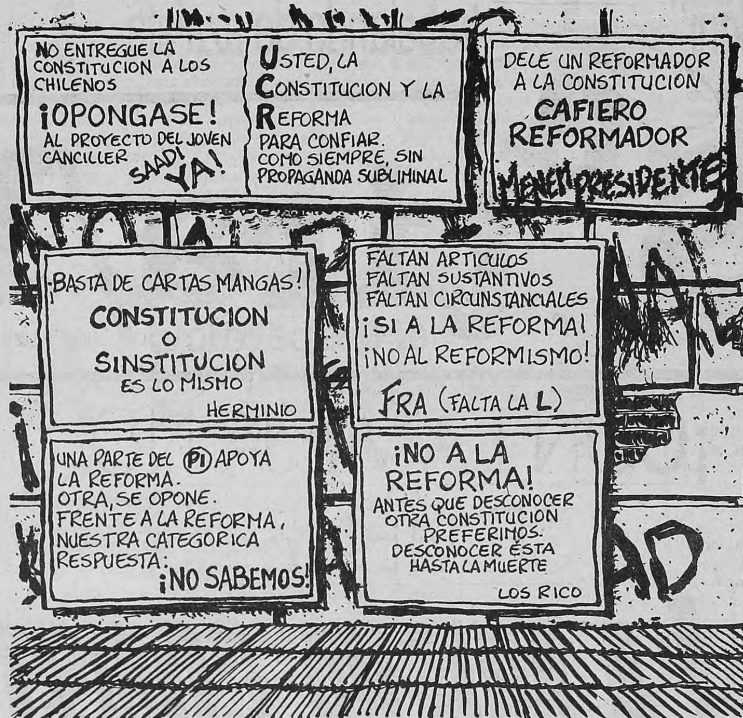 NO ENTREGUE LA
CONSTITUCION A LOS
CHILENOS
¡OPONGASE!
AL PROYECTO DEL JOVEN
CANCILLER
SAADI
YA!
USTED, LA
CONSTITUCION Y LA
REFORMA
PARA CONFIAR.
COMO SIEMPRE, SIN
PROPAGANDA SUBLIMINAL
DELE UN REFORMADOR
A LA CONSTITUCION
CAFIERO
REFORMADOR
MENEM PRESIDENTE
¡BASTA DE CARTAS MANGAS!
CONSTITUCION
O
SINSTITUCION
ES LO MISMO
HERMINIO
FALTAN ARTICULOS
FALTAN SUSTANTIVOS
FALTAN CIRCUNSTANCIALES
¡SI A LA REFORMA!
¡NO AL REFORMISMO!
FRA (FALTA LA L)
UNA PARTE DEL PI APOYA
LA REFORMA.
OTRA, SE OPONE.
FRENTE A LA REFORMA,
NUESTRA CATEGORICA
RESPUESTA:
¡NO SABEMOS!
¡NO A LA
REFORMA!
ANTES QUE DESCONOCER
OTRA CONSTITUCION
PREFERIMOS.
DESCONOCER ESTA
HASTA LA MUERTE
LOS RICO